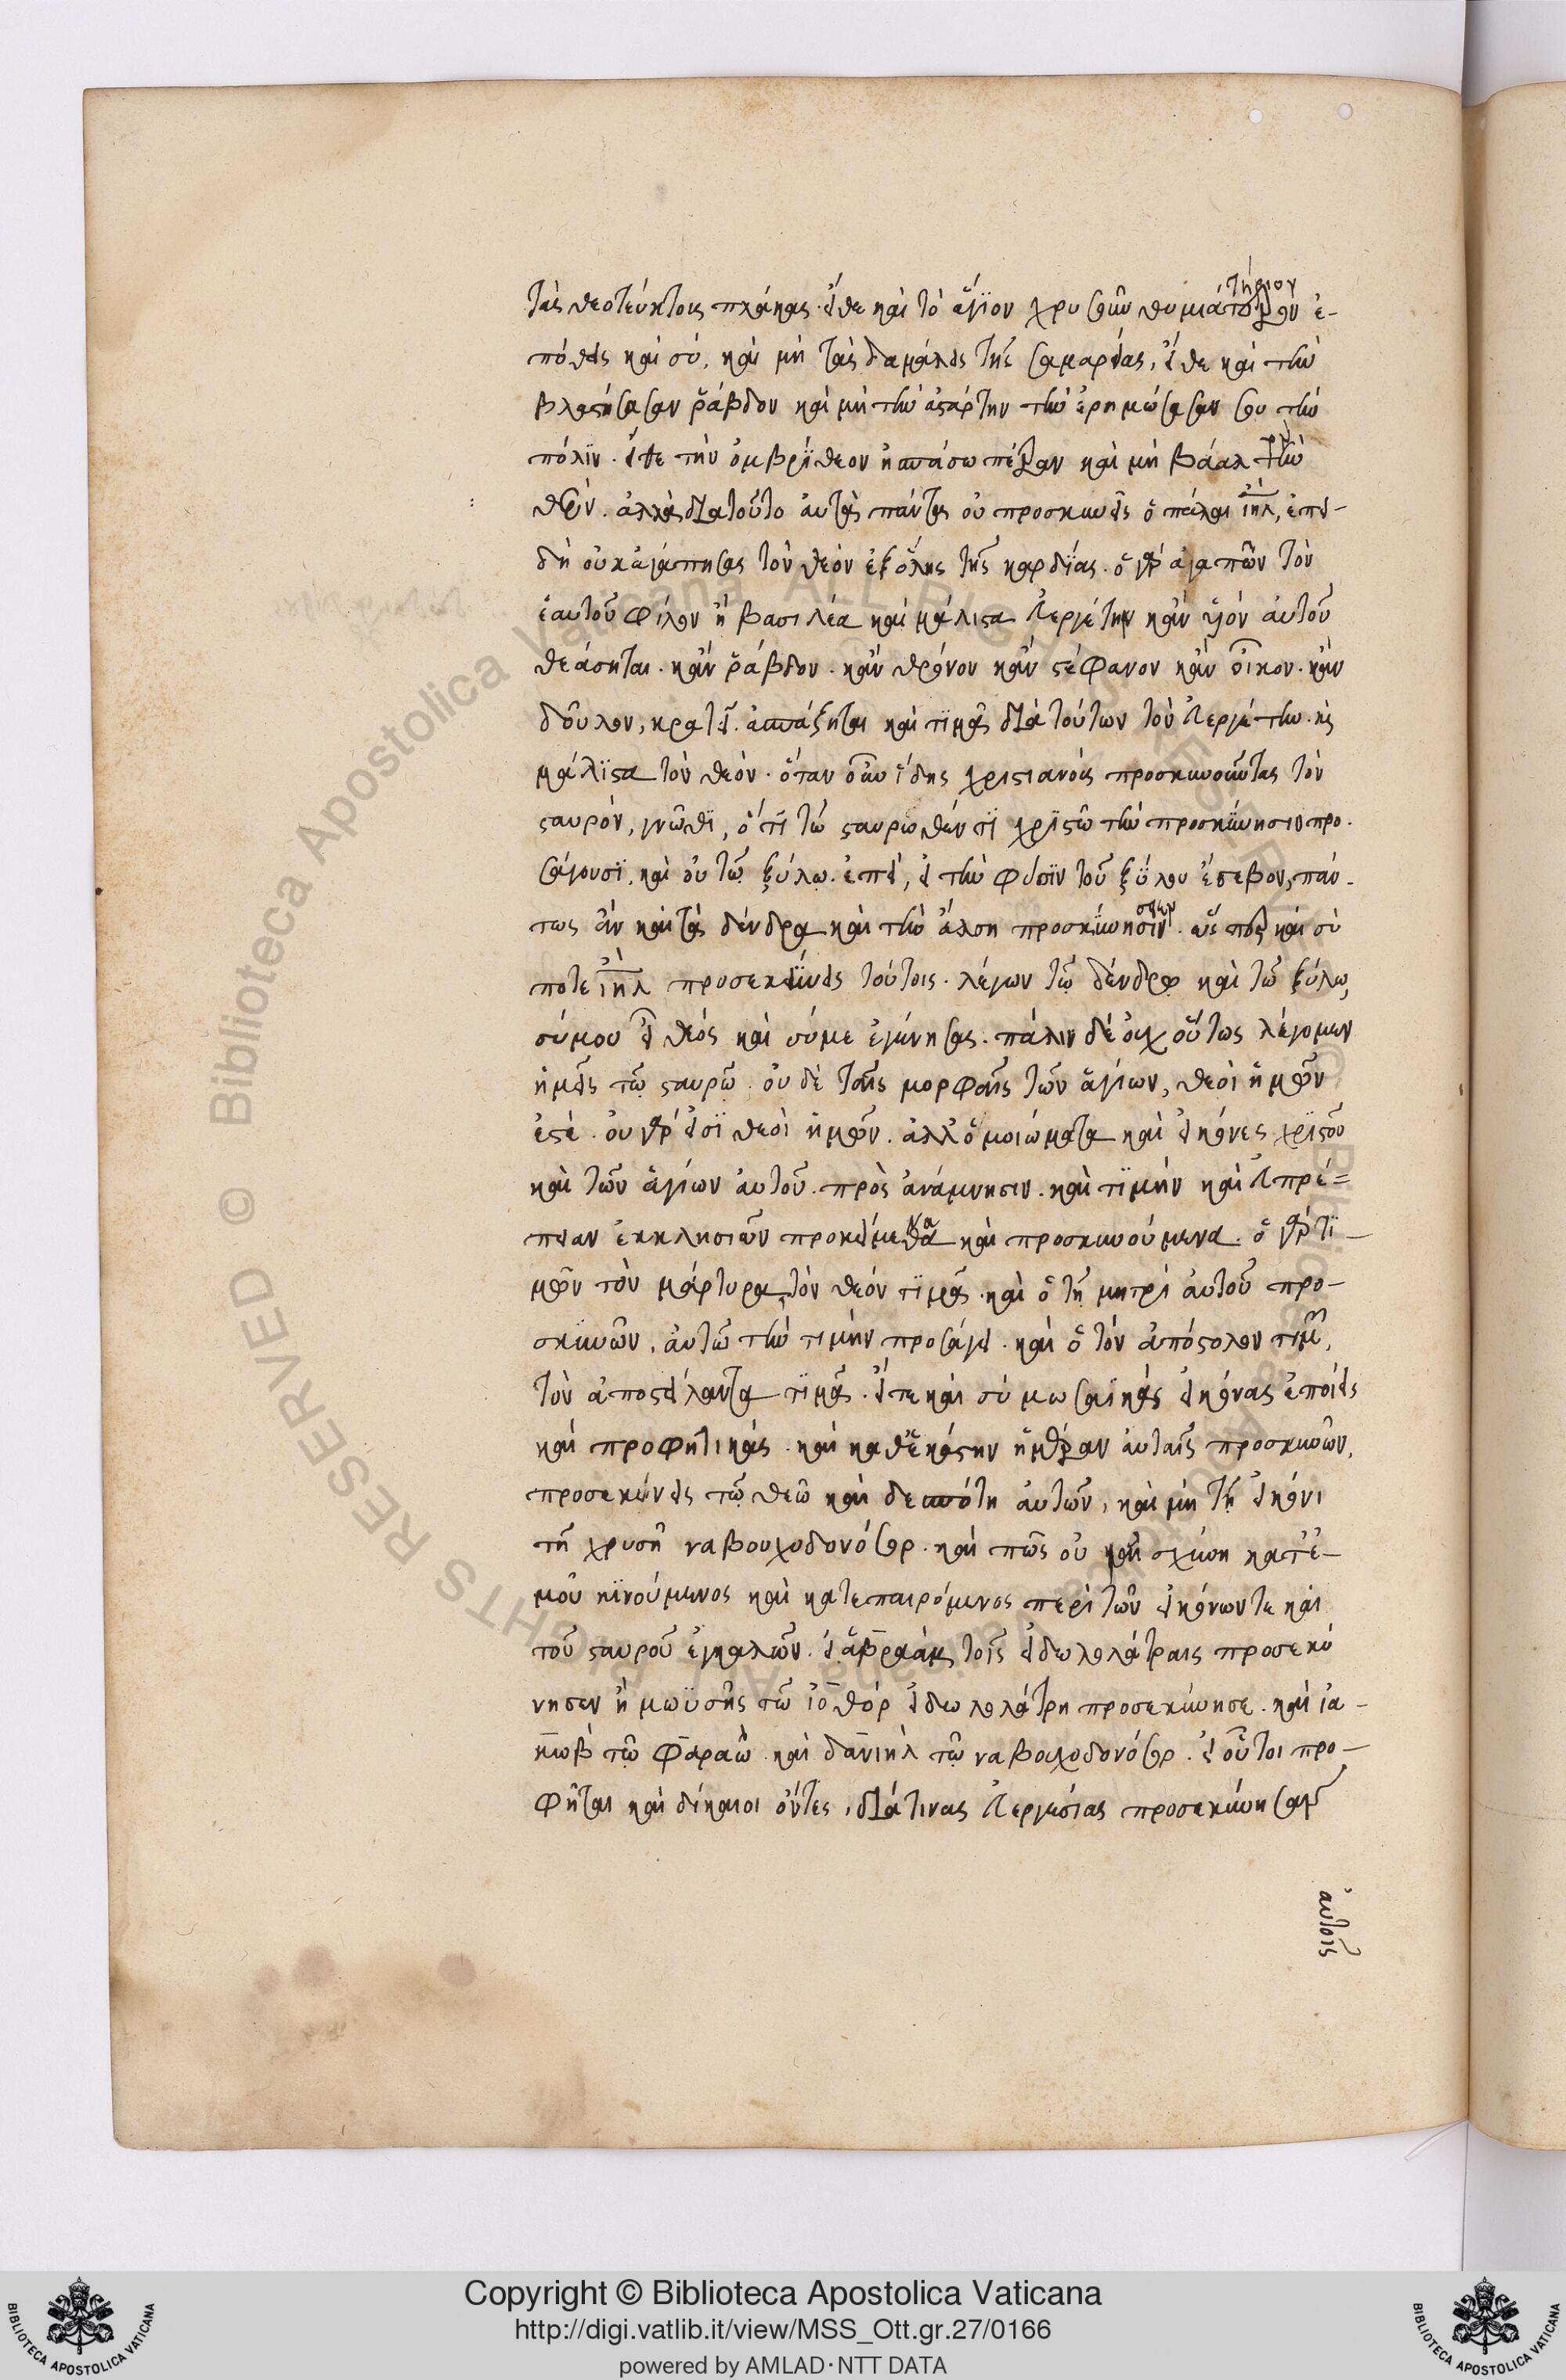 τὰς θεοτεύκτους πλάκας. εἴθε καὶ τὸ ἅγϊον χρυσοῦν θυμιατήριον ἐ-
πόθεις καὶ σύ, καὶ μὴ τὰς δαμάλεις τῆς σαμαρείας, εἴθε καὶ τὴν
βλαστήσασαν ῥάβδον καὶ μὴ τὴν ἀστάρτην τὴν ἐρημώσασάν σου τὴν
πόλϊν. εἴθε τὴν ὀμβρύθεον ἠσπάσω πέτραν καὶ μὴ βάαλ τὸν
θεόν. ἀλλὰ διατοῦτο αὐτὰ πάντα οὐ προσκυνεῖς ὁ πάλαι ἰηλ, ἐπει-
δὴ οὐκ ἀγάπησας τὸν θεὸν ἐξόλης τῆς καρδϊας. ὁ γὰρ ἀγαπῶν τὸν
ἑαυτοῦ φίλον ἢ βασιλέα καὶ μάλιστα εὐεργέτην κἂν υἱὸν αὐτοῦ
θεάσηται. κἂν ῥάβδον. κἂν θρόνον κἂν στέφανον κἂν οἶκον. κἂν
δοῦλον, κρατεῖ. ἀσπάζηται καὶ τϊμᾶ διὰ τούτων τὸν εὐεργέτην. κς
μάλϊστα τὸν θεόν. ὅταν οὖν ἴδης χριστιανοὺς προσκυνοῦντας τὸν
σταυρόν, γνῶθϊ, ὅτϊ τῶ σταυρωθέντϊ χρϊστῶ τὴν προσκύνησιν προ-
σάγουσϊ, καὶ οὐ τῶ ξύλω. ἐπεὶ, εἰ τὴν φύσϊν τοῦ ξύλου ἔσεβον, πάν-
τως ἂν καὶ τὰ δένδρα καὶ τὴν ἄλση προσκύνησαν. ὥς περ καὶ σὺ
ποτε ἰηλ προσεκύνεις τούτοις. λέγων τῶ δένδρω καὶ τῶ ξύλω,
σύμου εἶ θεός καὶ σύμε ἐγέννησας. πάλιν δὲ οὐχ οὕτως λέγομεν
ἡμεῖς τῶ σταυρῶ. οὐ δὲ ταῖς μορφαῖς τῶν ἁγίων, θεοὶ ἡμῶν
ἐστέ. οὐ γάρ εἰσϊ θεοὶ ἡμῶν. ἀλλ' ὁμοιώματα καὶ εἰκόνες χρϊστοῦ
καὶ τῶν ἁγίων αὐτοῦ. πρὸς ἀνάμνησιν. καὶ τϊμὴν καὶ εὐπρέ=
πειαν ἐκκλησιῶν προκείμενα καὶ προσκυνούμενα. ὁ γὰρ τϊ-
μῶν τὸν μάρτυρα, τὸν θεόν τϊμᾶ. καὶ ὁ τῆ μητρὶ αὐτοῦ προ-
σκυνῶν, αὐτῶ τὴν τιμὴν προσάγει. καὶ ὁ τὸν ἀπόστολον τιμῶν,
τὸν ἀποστείλαντα τϊμᾶ. εἴτε καὶ σὺ μωσαϊκὰς εἰκόνας ἐποίεις
καὶ προφητικάς. καὶ καθ' ἑκάστην ἡμέραν αὐταῖς προσκυνῶν,
προσεκύνεις τῶ θεῶ καὶ δεσπότη αὐτῶν, καὶ μὴ τῆ εἰκόνι
τῆ χρυσῆ ναβουχοδονόσορ. καὶ πῶς οὐ καταισχύνη κατ' ἐ-
μοῦ κϊνούμενος καὶ κατεπαιρόμενος περὶ τῶν εἰκόνωντε καὶ
τοῦ σταυροῦ ἐγκαλῶν. εἰ ἀβραὰμ τοῖς εἰδωλολάτραις προσεκύ
νησεν ἢ μωϋσῆς τῶ ἰοθὸρ εἰδωλολάτρη προσεκύνησε. καὶ ἰα-
κωβ τῶ φαραῶ. καὶ δανιηλ τῶ ναβουχοδονόσορ. εἰ οὗτοι προ-
φῆται καὶ δίκαιοι ὄντες, διά τινας εὐεργεσίας προσεκύνησαν
αὐτοῖς
Copyright © Biblioteca Apostolica Vaticana
http://digi.vatlib.it/view/MSS_Ott.gr.27/0166
powered by AMLAD·NTT DATA